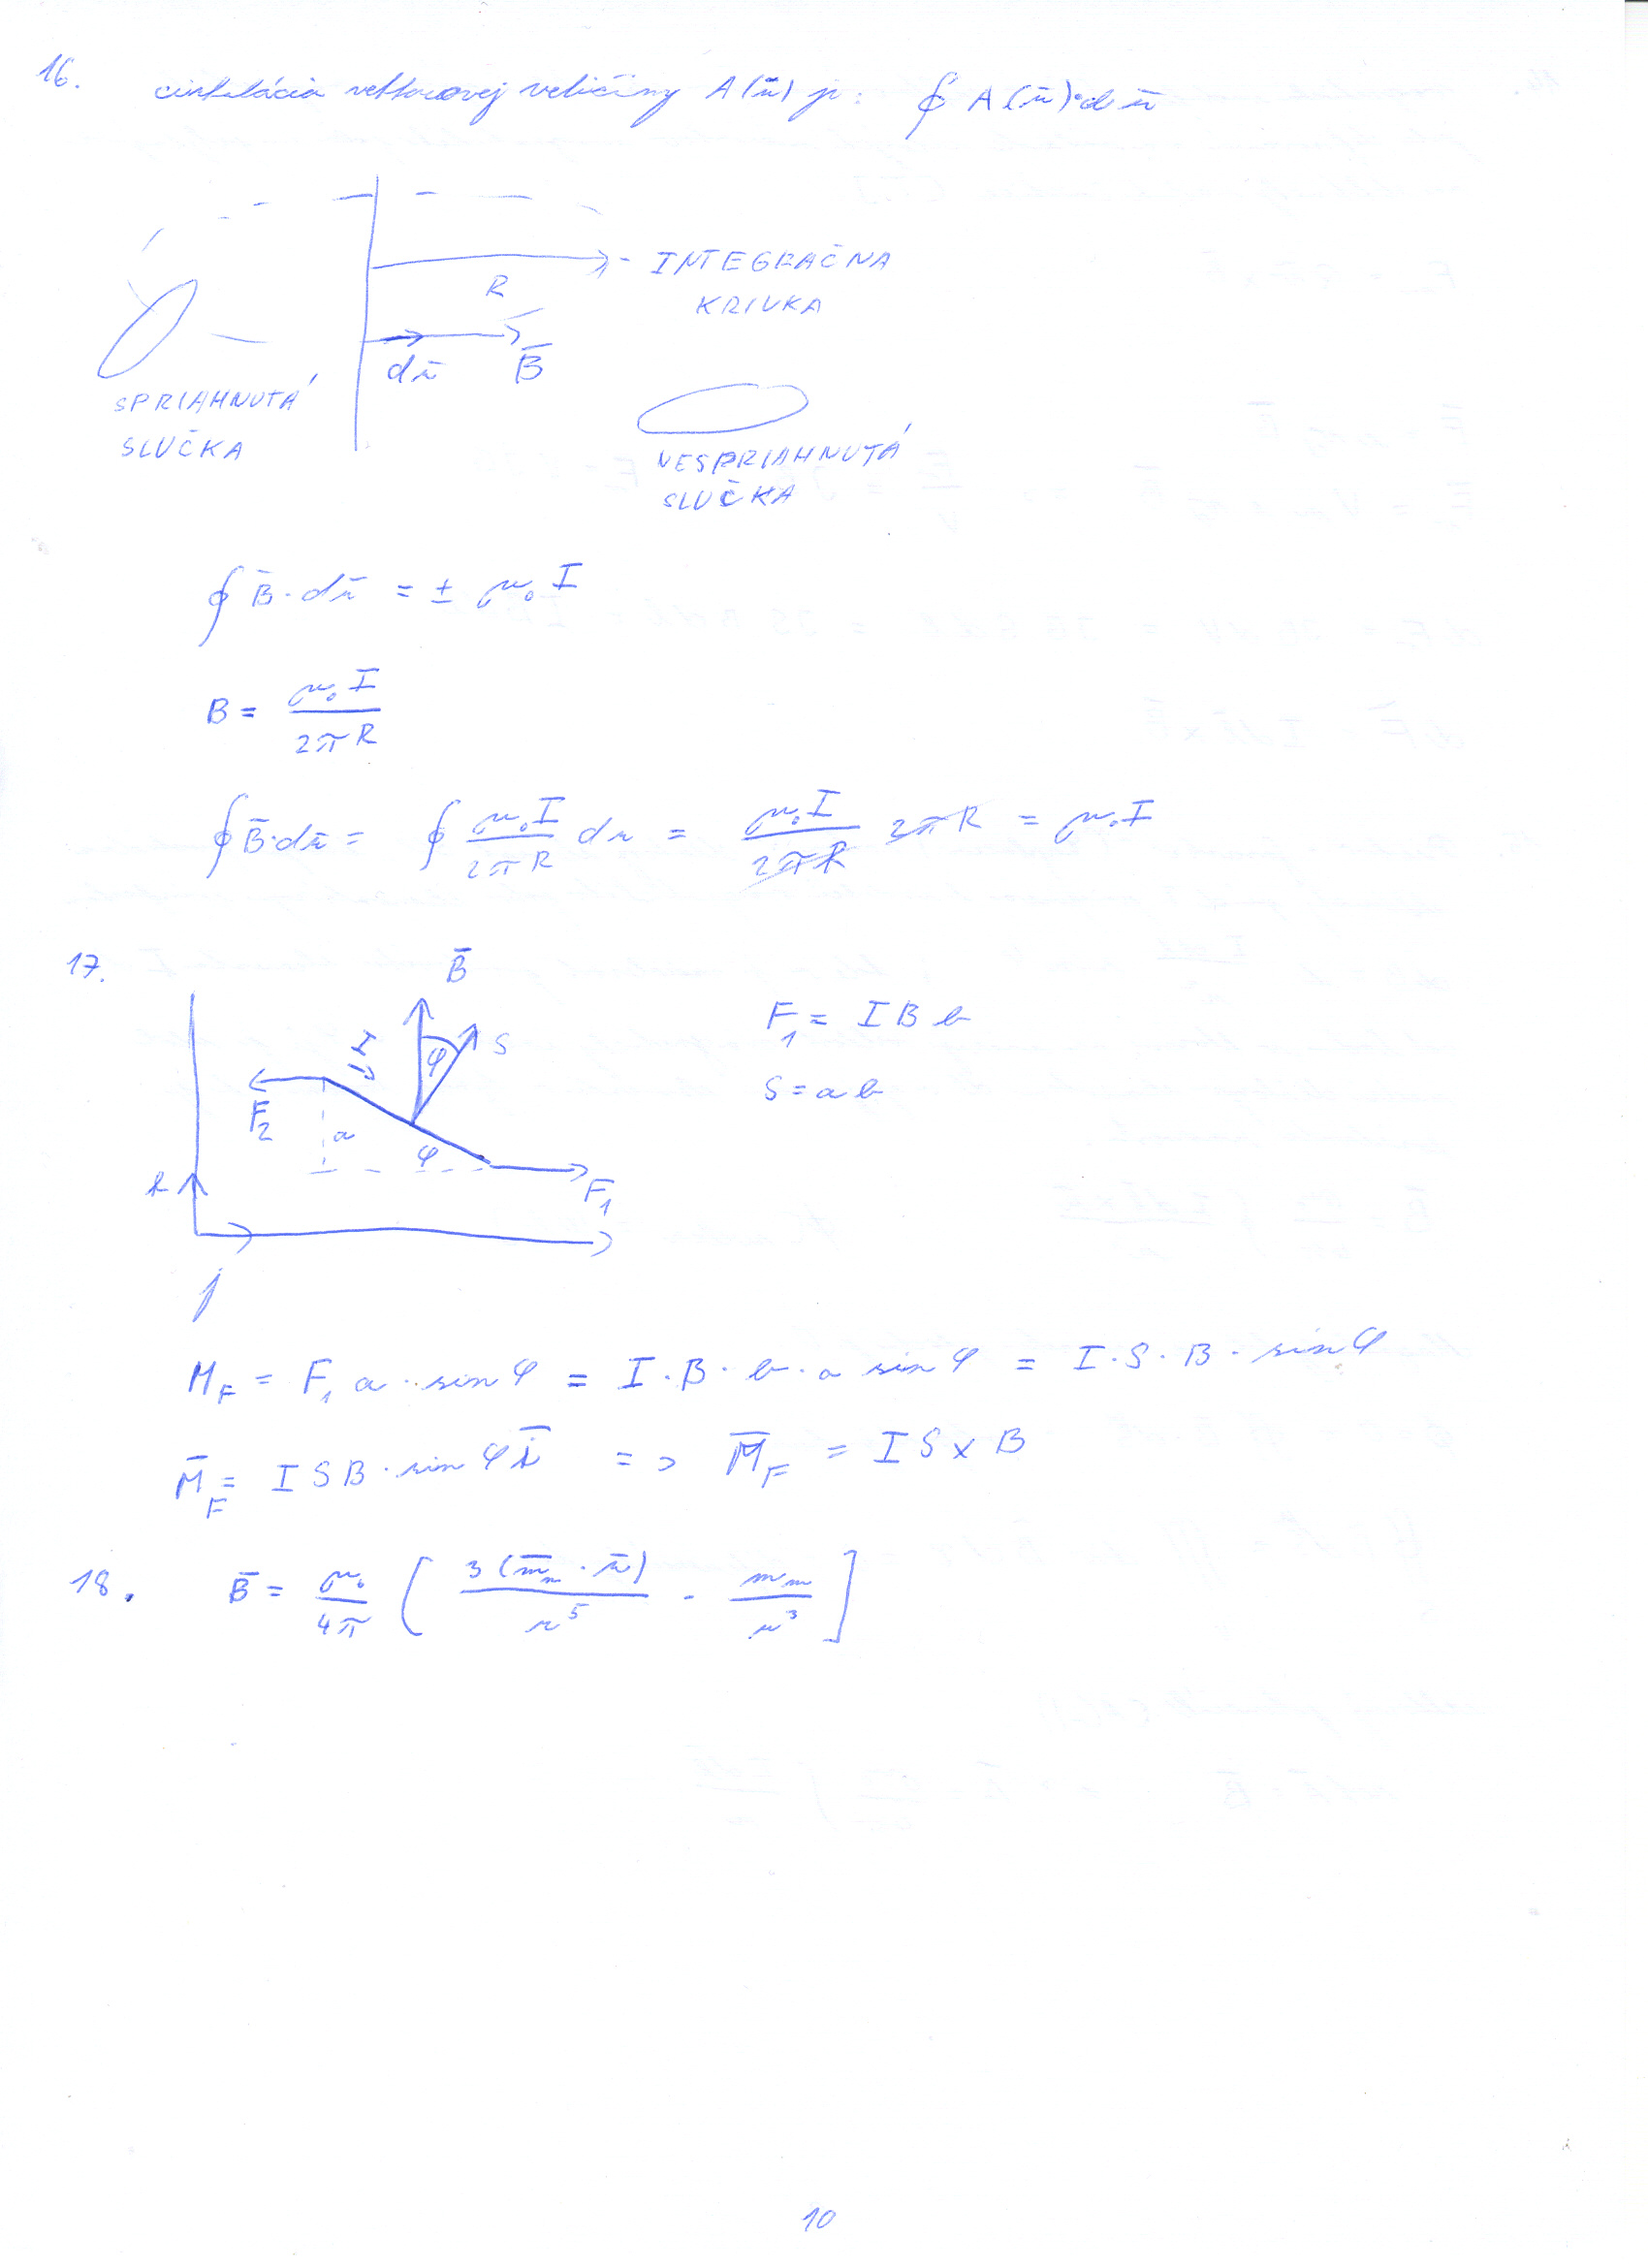 16. cirkulácia vektorovej veličiny A(r̄) je: ∮ A(r̄)·dr̄
R
INTEGRAČNA
KRIVKA
dr̄ B̄
SPRIAHNUTÁ
SLUČKA
NESPRIAHNUTÁ
SLUČKA
∮ B̄·dr̄ = ± μ₀ I
B = μ₀ I / 2πR
∮ B̄·dr̄ = ∮ μ₀I / 2πR dr = μ₀I / 2πR 2πR = μ₀I
17.
B̄
I φ S
F₂ a φ
k F₁
j
F₁ = I B b
S = a b
M_F = F₁ a · sin φ = I · B · b · a sin φ = I · S · B · sin φ
M̄_F = I S B · sin φ ī => M̄_F = I S × B
18. B̄ = μ₀ / 4π [ 3(m̄ₘ · r̄) / r⁵ - mₘ / r³ ]
10